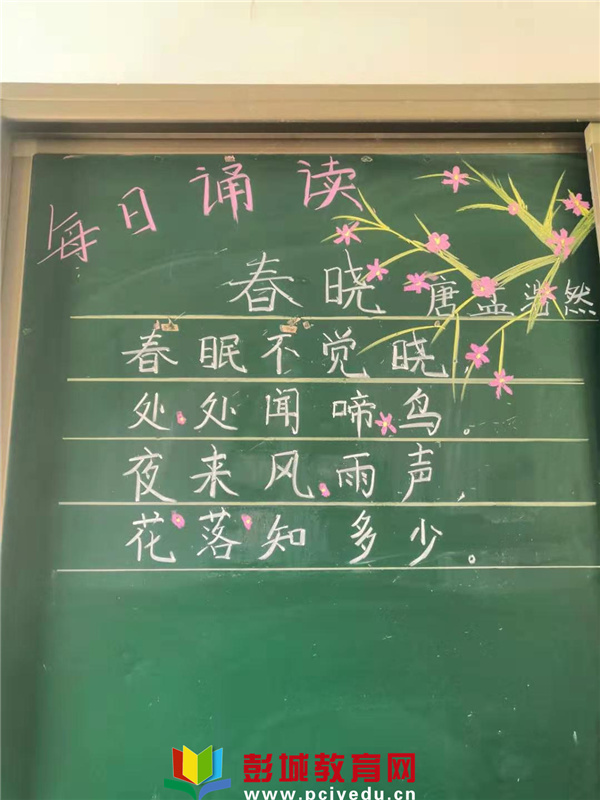 每日诵读
春晓 唐 孟浩然
春眠不觉晓,
处处闻啼鸟。
夜来风雨声,
花落知多少。
彭城教育网
www.pcjyedu.cn